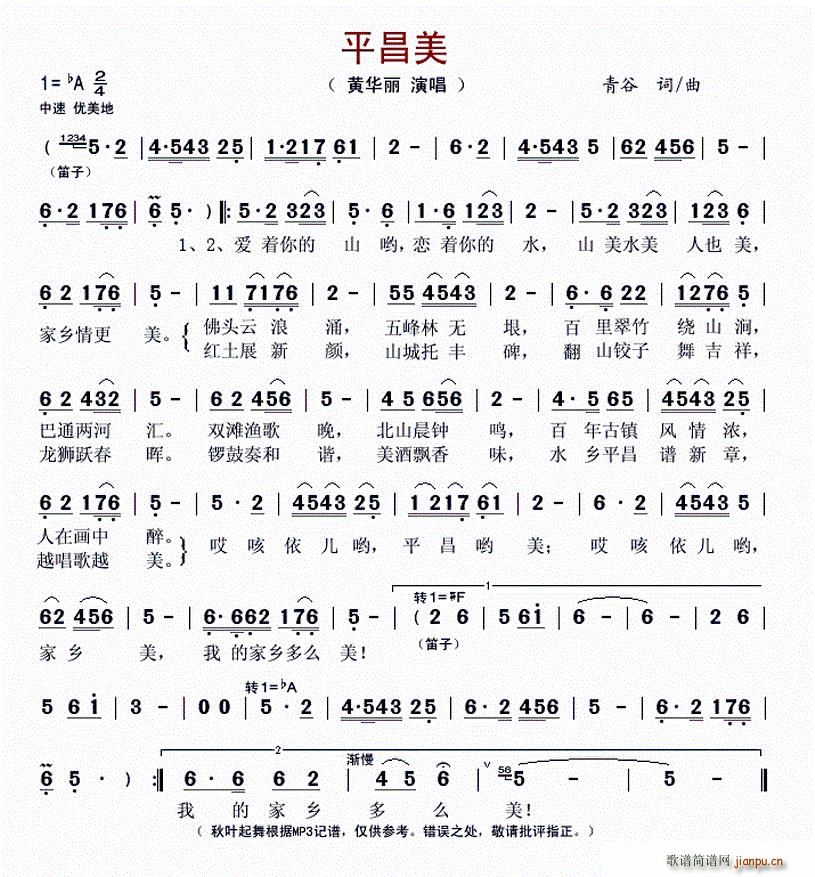 平昌美
1=♭A 2/4 （ 黄华丽 演唱 ） 青谷 词/曲
中速 优美地
( 1234 5·2 | 4·543 25 | 1·217 61 | 2 - | 6·2 | 4·543 5 | 62 456 | 5 - |
（笛子）
6·2 176 | 6 5· ) |: 5·2 323 | 5·6 | 1·6 123 | 2 - | 5·2 323 | 123 6 |
1、2、爱 着你的 山 哟，恋 着你的 水， 山 美水美 人也 美，
6 2 176 | 5 - | 11 7176 | 2 - | 55 4543 | 2 - | 6·6 22 | 1276 5 |
家乡情更 美。 佛头云 浪 涌， 五峰林 无 垠， 百 里翠竹 绕 山 涧，
红土展 新 颜， 山城托 丰 碑， 翻 山铰子 舞 吉 祥，
6 2 432 | 5 - | 6 2 456 | 5 - | 4 5 656 | 2 - | 4·5 65 | 4543 25 |
巴通两河 汇。 双滩渔歌 晚， 北山晨钟 鸣， 百 年古镇 风 情 浓，
龙狮跃春 晖。 锣鼓奏和 谐， 美酒飘香 味， 水 乡平昌 谱 新 章，
6 2 176 | 5 - | 5·2 | 4543 25 | 1 217 61 | 2 - | 6·2 | 4543 5 |
人在画中 醉。 哎 咳 依 儿 哟， 平 昌 哟 美； 哎 咳 依 儿 哟，
越唱歌越 美。
转1=♮F 1
62 456 | 5 - | 6·662 176 | 5 - | ( 2 6 | 5 61 | 6 - | 6 - | 2 6 |
（笛子）
家 乡 美， 我 的家乡多么 美！
转1=♭A
5 6 1 | 3 - | 0 0 | 5·2 | 4·543 25 | 6·2 456 | 5 - | 6·2 176 |
2 渐慢
6 5· ) :| 6·6 6 2 | 4 5 6 | ∨ 56 5 - | 5 - ‖
我 的 家 乡 多 么 美！
（ 秋叶起舞根据MP3记谱，仅供参考。错误之处，敬请批评指正。）
歌谱简谱网
jianpu.cn